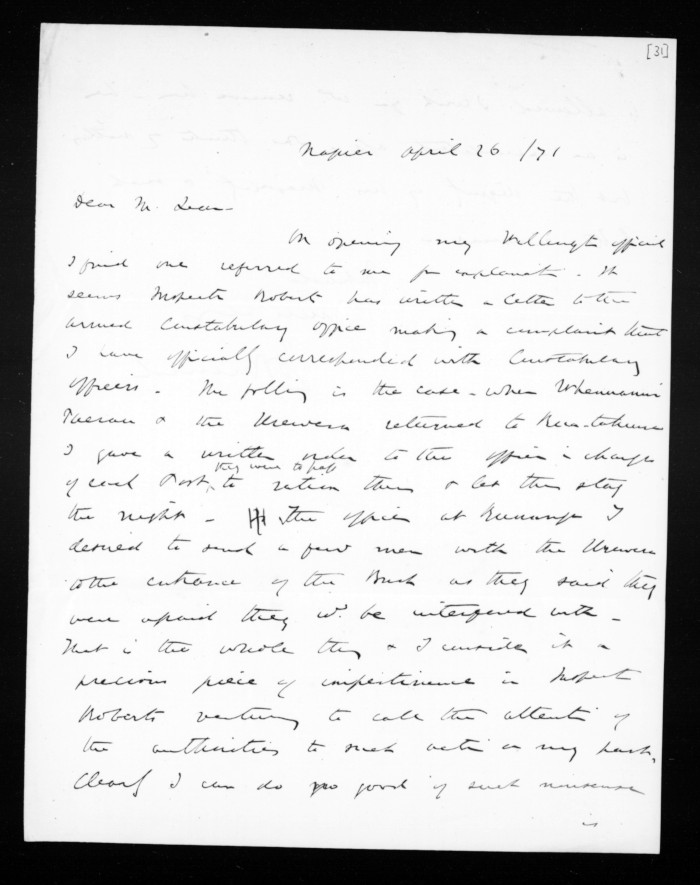 [31]
Napier April 26 /71
Dear McLean
On opening my Wellingt official
I find one referred to me for explanat. It
seems Inspectr Robert has written a letter to the
armed Constabulary office making a complaint that
I have officially corresponded with Constabulary
officers. The follg is the case - when
& the Urewera returned to
I gave a written order to the officer in charge
they were to pass
of each Post, to ration them & let them stay
the night - The officer at Runanga I
desired to send a few men with the Urewera
to the entrance of the Bush as they said they
were afraid they wd. be interfered with -
That is the whole thing & I consider it a
precious piece of impertinence in Inspect
Roberts venturing to call the attenti of
the authorities to such acti on my part.
Clearly I can do no good if such nonsense
is